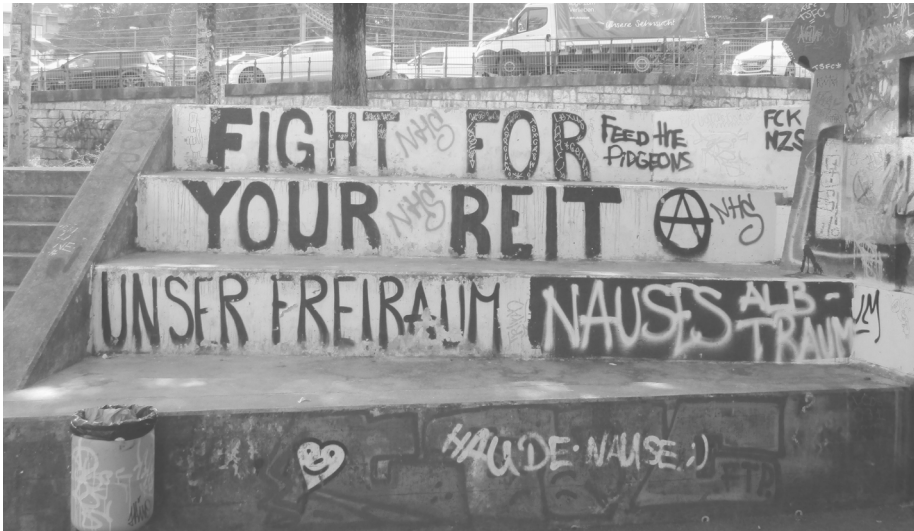 FIGHT FOR
FEED the
PiDGEONS
FCK
NZS
NHS
YOUR REIT
NHS
A
NHS
UNSER FREIRAUM
NAUSES ALB-
TRAUM
HAU'DE·NAUSE :)
FTP